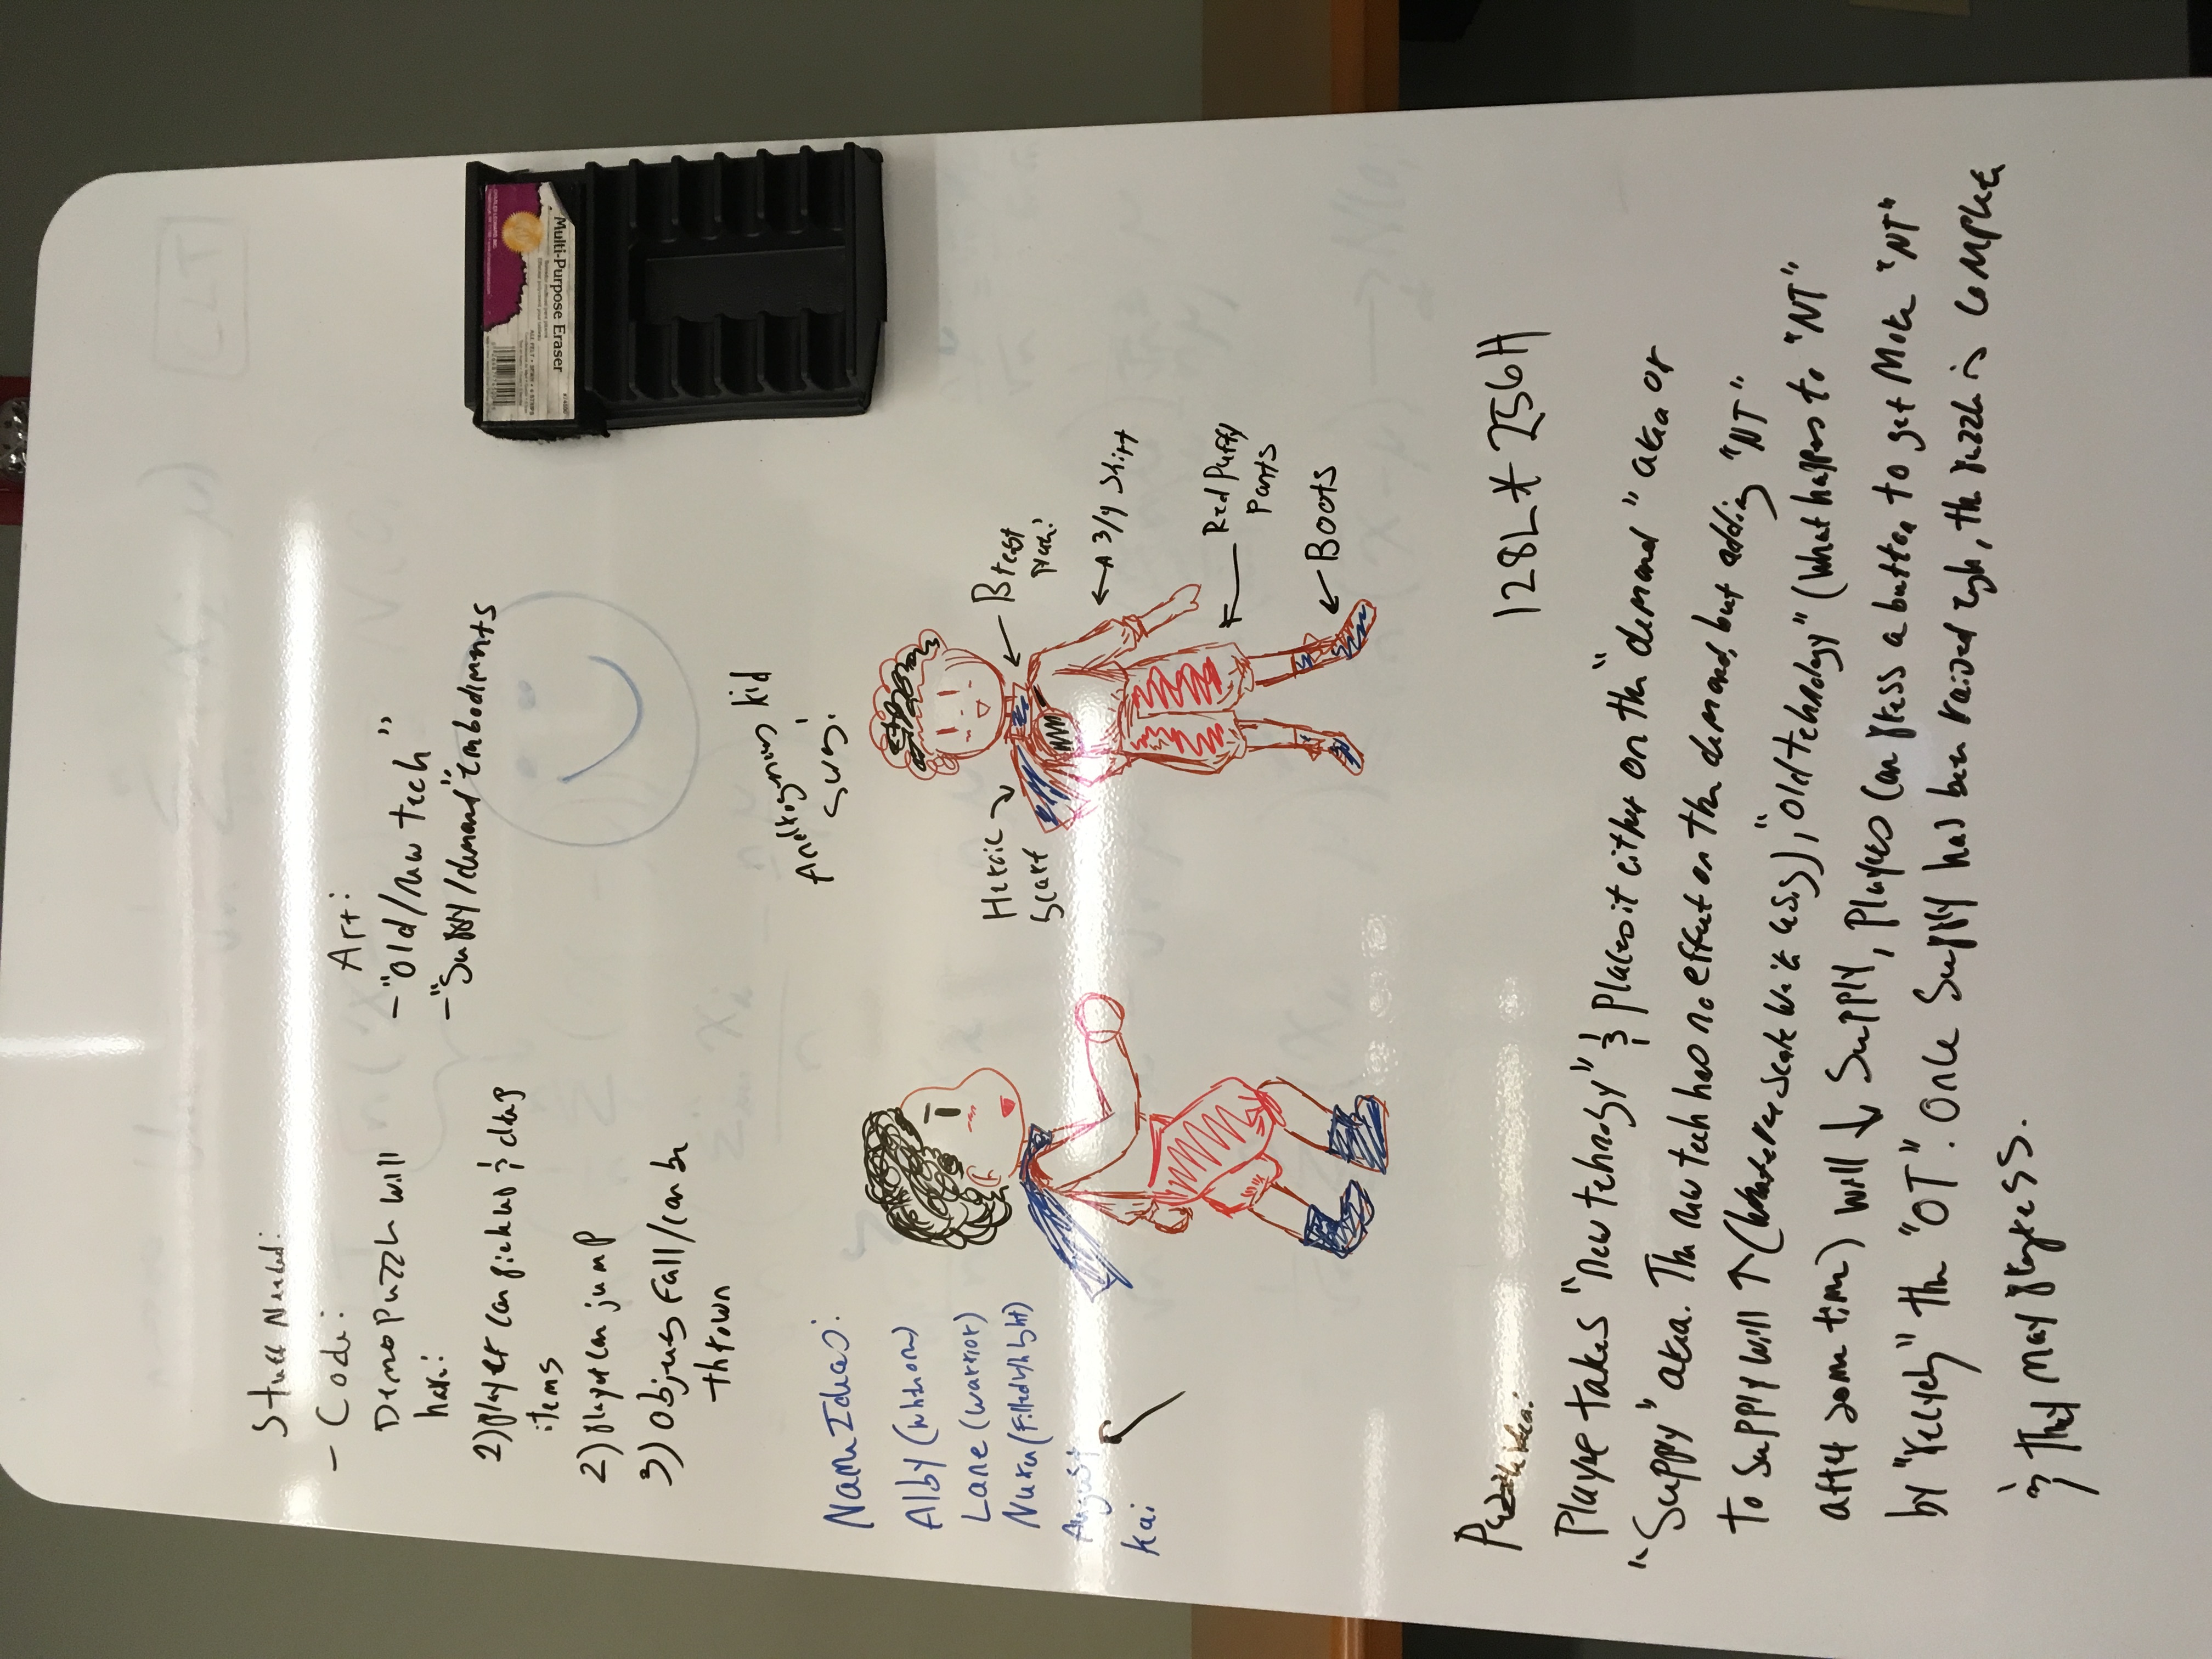 Stuff Needed:
- Code:
Demo Puzzle will
have:
2) player can pickup & drop
items
2) player can jump
3) Objects Fall / can be
thrown
Art:
- "Old/new tech"
- "Supply/demand" embodiments
Androgynous kid
Multi-Purpose Eraser
Name Ideas:
Alby (
Lane (warrior)
Nuru (Filled w/ light)
August
Kai
Heroic
Scarf
Breast
A 3/4 Shirt
Red Puffy
Pants
Boots
128L * 256H
Puzzle Idea:
Player takes "new technology" & places it either on the "demand" aka or
"Supply" aka. The new tech has no effect on the demand, but adding "NT"
to supply will ↑ (whatever scale we're using), "old technology" (what happens to "NT"
after some time) will ↓ Supply, Players can press a button to get more "NT"
by "recycling" the "OT". Once Supply has been raised enough, the puzzle is complete
& they may progress.